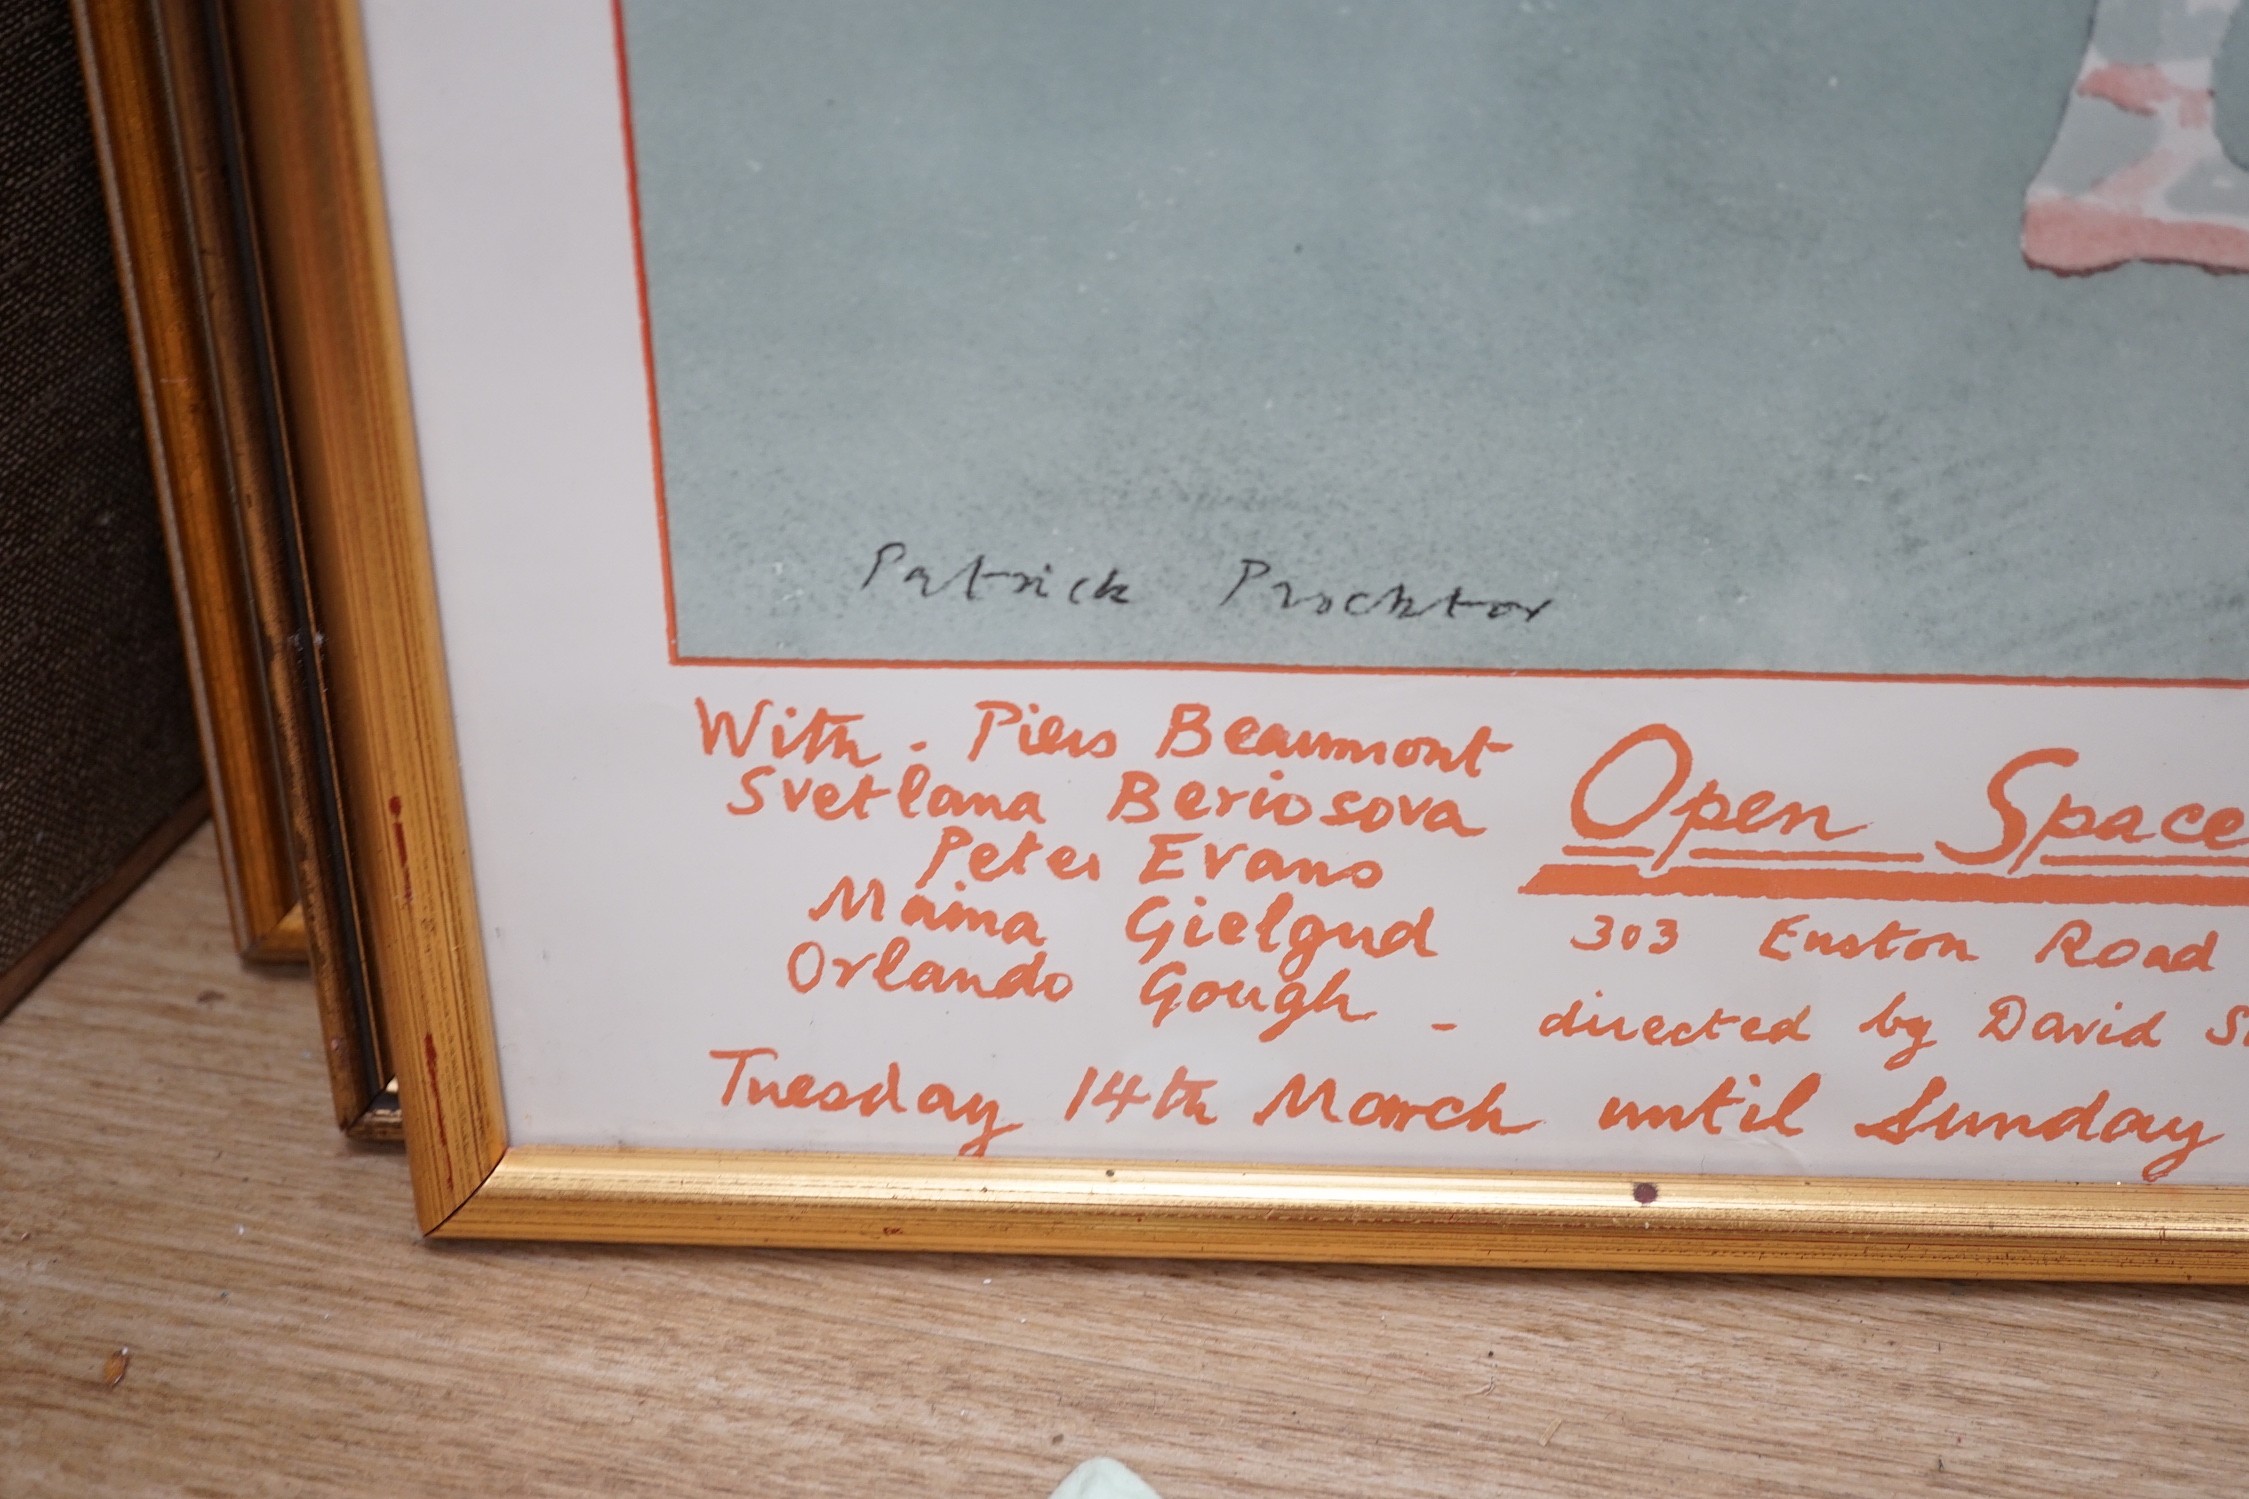 Patrick Procktor
With . Piers Beaumont
Svetlana Beriosova
Peter Evans
Maina Gielgud
Orlando Gough -
Open Space
303 Euston Road
directed by David
Tuesday 14th March until Sunday